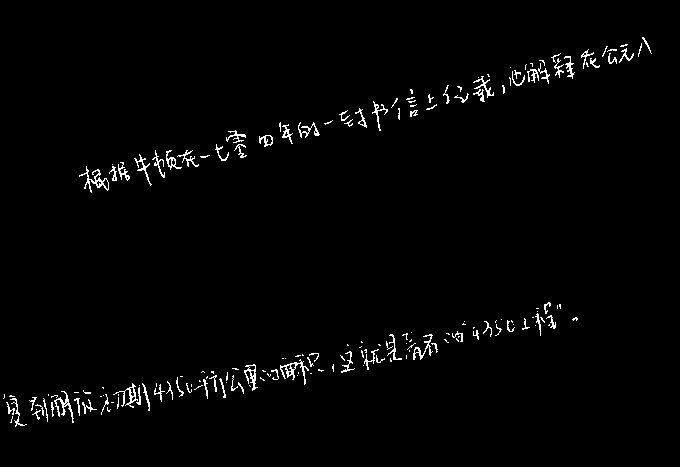 根据牛顿在一七零四年的一封书信上记载，他解释在公元八
复到解放初期4350平方公里的面积，这就是著名的“4350工程”。